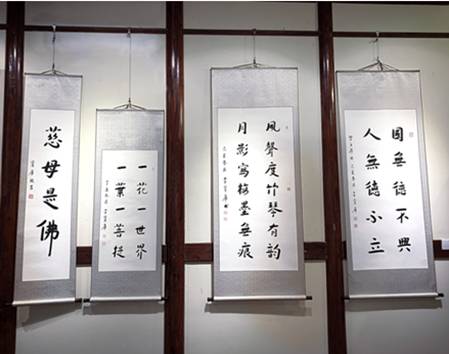 国無德不興
人無德不立
風聲度竹琴有韵
月影寫梅墨無痕
一花一世界
一葉一菩提
慈母是佛